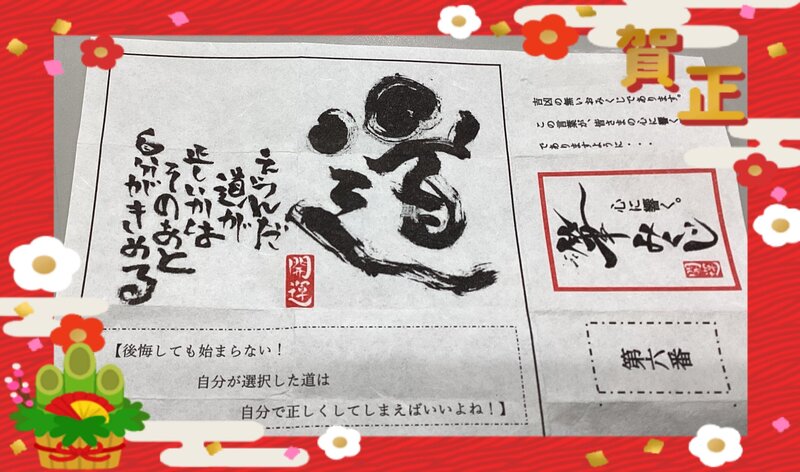 賀正
吉凶の無いおみくじであります。
この言葉が、皆さまの心に響く
でありますように・・・
心に響く。
筆みくじ
開運
第六番
道
えらんだ
道が
正しいかは
そのあと
自分がきめる
開運
【後悔しても始まらない!
自分が選択した道は
自分で正しくしてしまえばいいよね!】